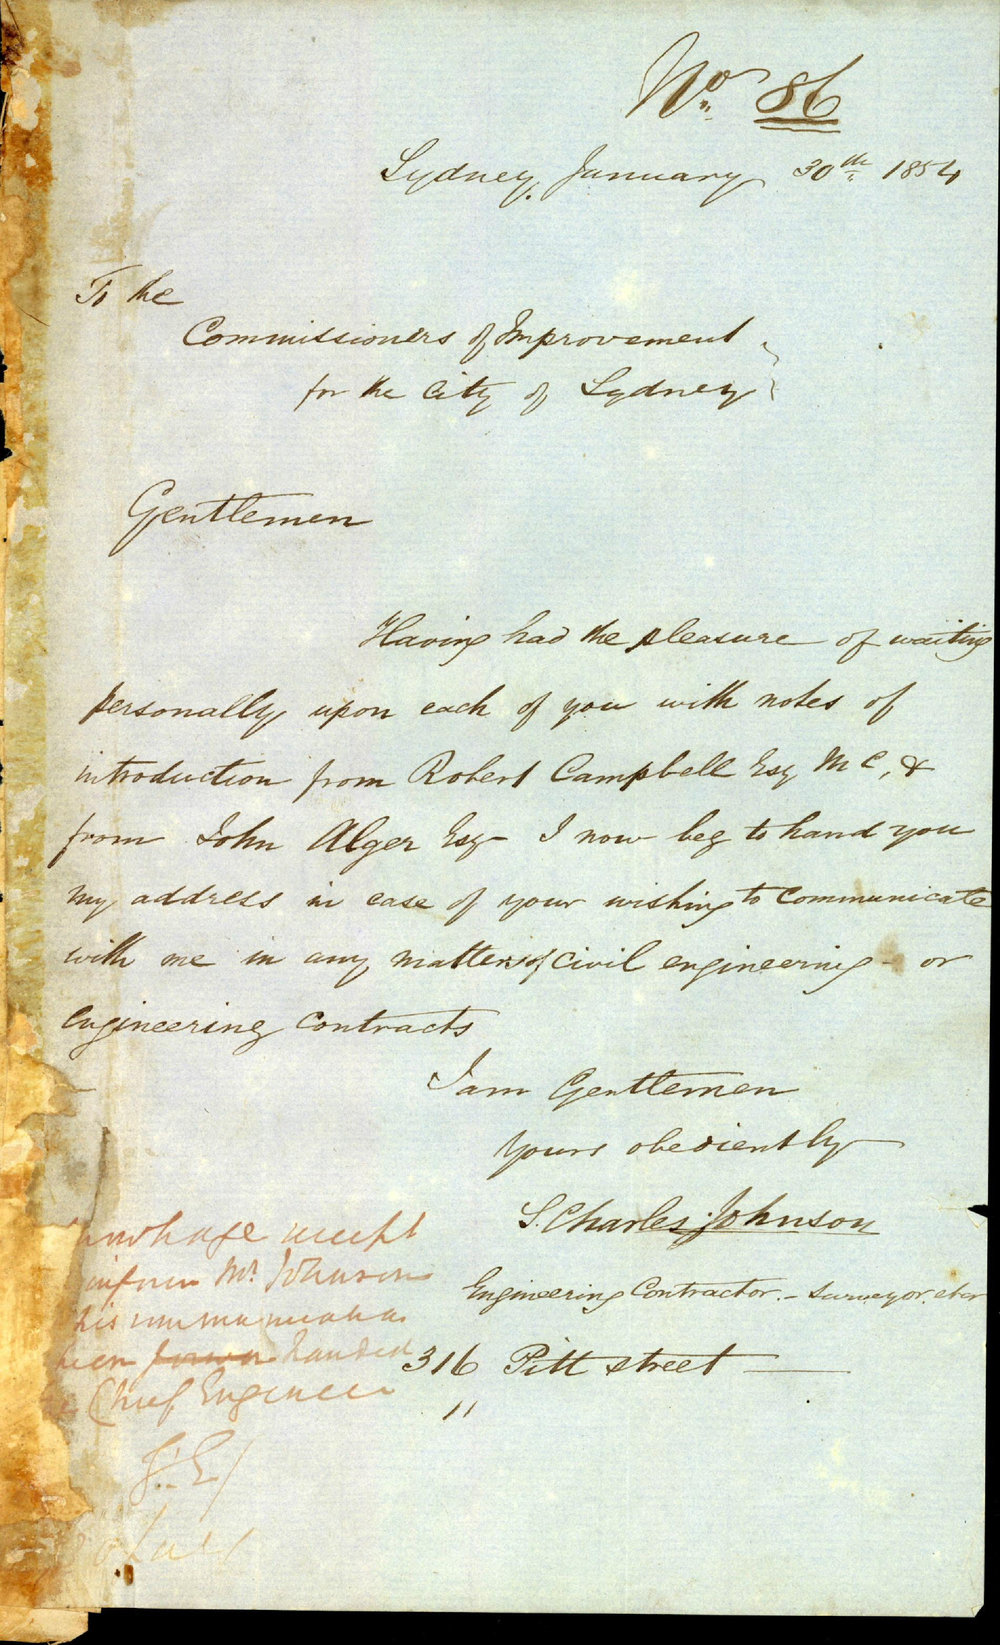 No. 86
Sydney, January 30th 1854
To the
Commissioners of Improvement
for the City of Sydney
Gentlemen
Having had the pleasure of waiting
personally upon each of you with notes of
introduction from Robert Campbell Esq M C, &
from John Alger Esq - I now beg to hand you
my address in case of your wishing to communicate
with me in any matters of civil engineering - or
Engineering Contracts
I am Gentlemen
Yours obediently
S. Charles Johnson
Engineering Contractor. - Surveyor. etc
316 Pitt street
inform Mr. Johnson
his communication
been handed
Chief Engineer